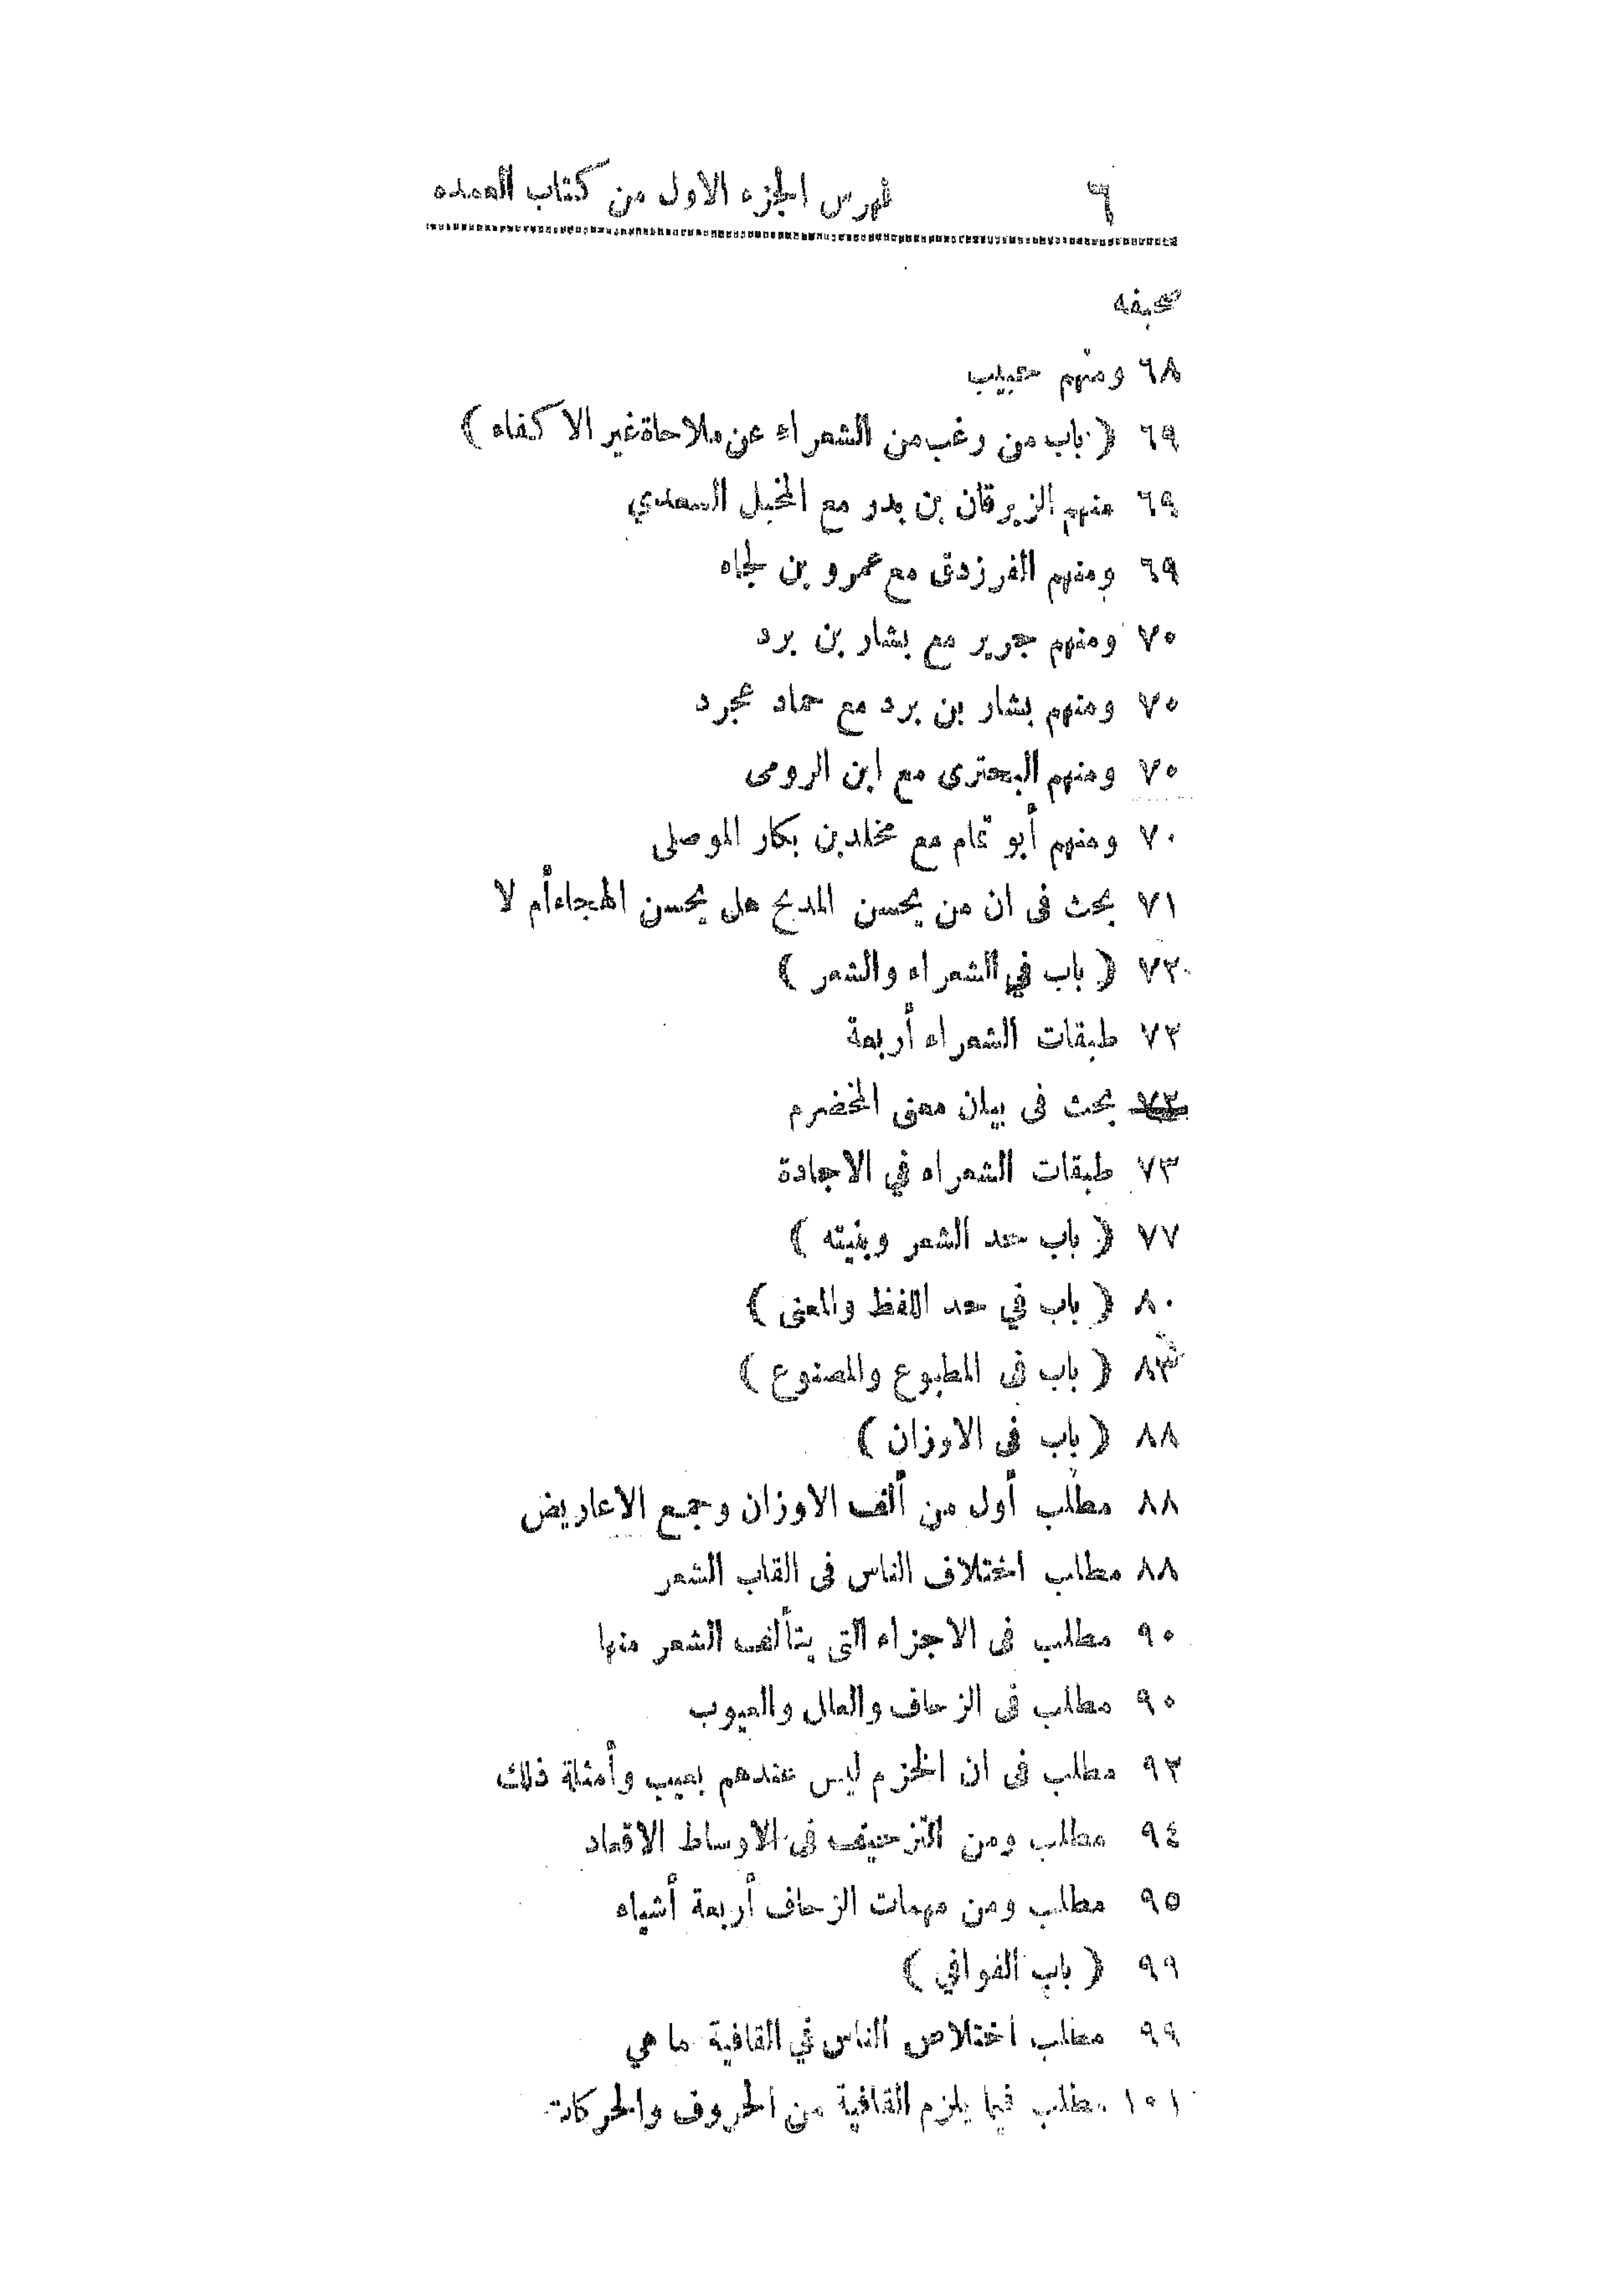 ٦ فهرس الجزء الاول من كتاب العمده
صحيفه
٦٨ ومنهم حبيب
٦٩ ( باب من رغب من الشعراء عن ملاحاة غير الاكفاء )
٦٩ منهم الزبرقان بن بدر مع المخبل السعدي
٦٩ ومنهم الفرزدق مع عمرو بن لجاء
٧٠ ومنهم جرير مع بشار بن برد
٧٠ ومنهم بشار بن برد مع حماد عجرد
٧٠ ومنهم البحترى مع ابن الرومى
٧٠ ومنهم أبو تمام مع مخلد بن بكار الموصلى
٧١ بحث فى ان من يحسن المديح هل يحسن الهجاء أم لا
٧٢ ( باب في الشعراء والشعر )
٧٢ طبقات الشعراء أربعة
بحث فى بيان معنى المخضرم
٧٣ طبقات الشعراء في الاجادة
٧٧ ( باب حد الشعر وبنيته )
٨٠ ( باب في حد اللفظ والمعنى )
٨٣ ( باب فى المطبوع والمصنوع )
٨٨ ( باب فى الاوزان )
٨٨ مطلب أول من ألف الاوزان وجمع الاعاريض
٨٨ مطلب اختلاف الناس فى القاب الشعر
٩٠ مطلب فى الاجزاء التى يتألف الشعر منها
٩٠ مطلب فى الزحاف والعلل والعيوب
٩٢ مطلب فى ان الخزم ليس عندهم بعيب وأمثلة ذلك
٩٤ مطلب ومن التزحيف فى الاوساط الاقعاد
٩٥ مطلب ومن مهمات الزحاف أربعة أشياء
٩٩ ( باب القوافي )
٩٩ مطلب اختلاف الناس في القافية ما هي
١٠١ مطلب فيما يلزم القافية من الحروف والحركات